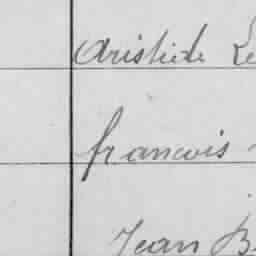 Aristide Le
francois
Jean B